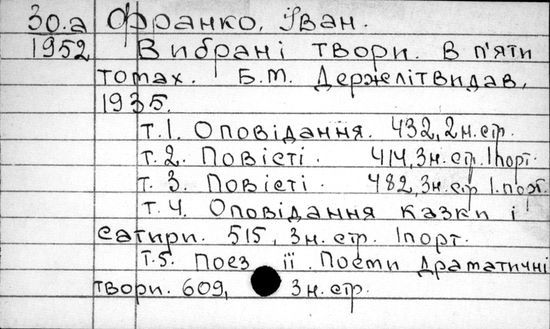 30.а Франко, Іван.
1952 Вибрані твори. В п'яти
томах. Б.М. Держлітвидав,
1935.
т.1. Оповідання. 432, 2 н.стр.
т.2. Повісті. 414, 3 н.стр. 1 порт.
т.3. Повісті. 482, 3 н.стр 1. порт.
т.4. Оповідання казки і
сатири. 515, 3 н. стр. 1 порт.
т.5. Поез ії. Поеми Драматичні
твори. 609, 3 н. стр.